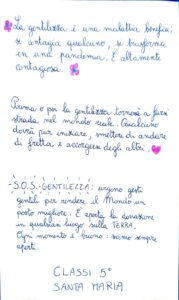 La gentilezza è una malattia benefica:
se contagia qualcuno, si trasforma
in una pandemia. È altamente
contagiosa.
Prima o poi la gentilezza tornerà a farsi
strada nel mondo reale. Qualcuno
dovrà pur iniziare, smettere di andare
di fretta e accorgersi degli altri.
-S.O.S-GENTILEZZA: urgono gesti
gentili per rendere il Mondo un
posto migliore. È aperta la donazione
in qualsiasi luogo sulla TERRA.
Ogni momento è buono: siamo sempre
aperti.
CLASSI 5°
SANTA MARIA